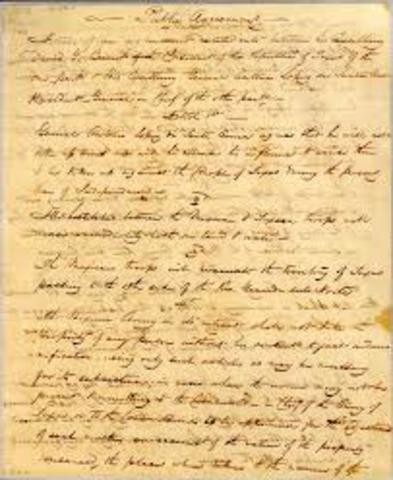 Public Agreement
Articles of an agreement entered into between his Excellency
David G. Burnet President of the Republic of Texas of the
one part & His Excellency General Antonio Lopez de Santa Anna
President General in Chief of the other part
Article 1st
General Antonio Lopez de Santa Anna agrees that he will not
take up arms nor will he his influence to cause them
to be taken up against the People of Texas during the present
War of Independence
2
Hostilities between the Mexican & Texian troops will
cease immediately both on land & water
3
The Mexican troops will evacuate the territory of Texas
passing to the other side of the Rio Grande del Norte
The Mexican Army in its retreat shall not take the
property of any person without his consent & just indem-
nification, using only such articles as may be necessary
for its subsistence, in cases where the owner may not be
present to the Commander in Chief of the Army of
Texas or to the
of such matters an account of the value of the property
consumed, the place where taken & the name of the